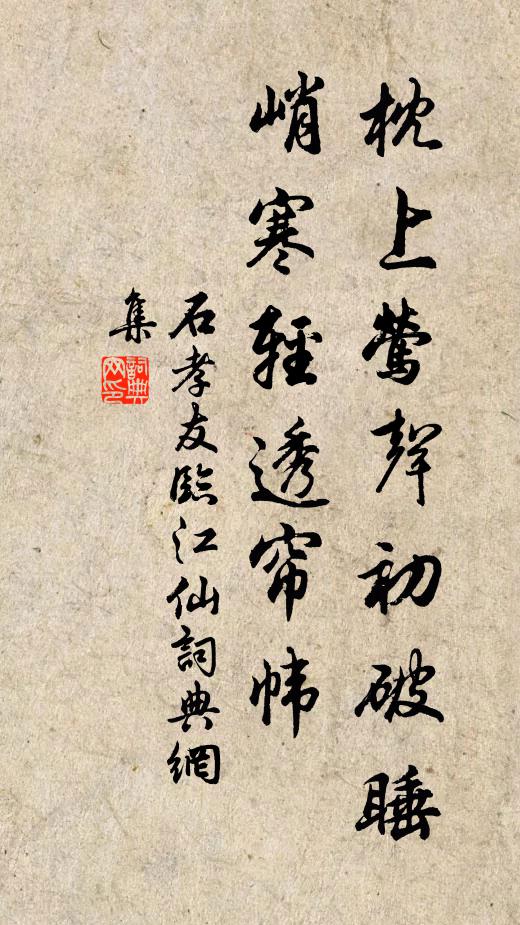 枕上鶯聲初破睡
峭寒輕透帘幃
石孝友臨江仙詞典網
集
詞典網印